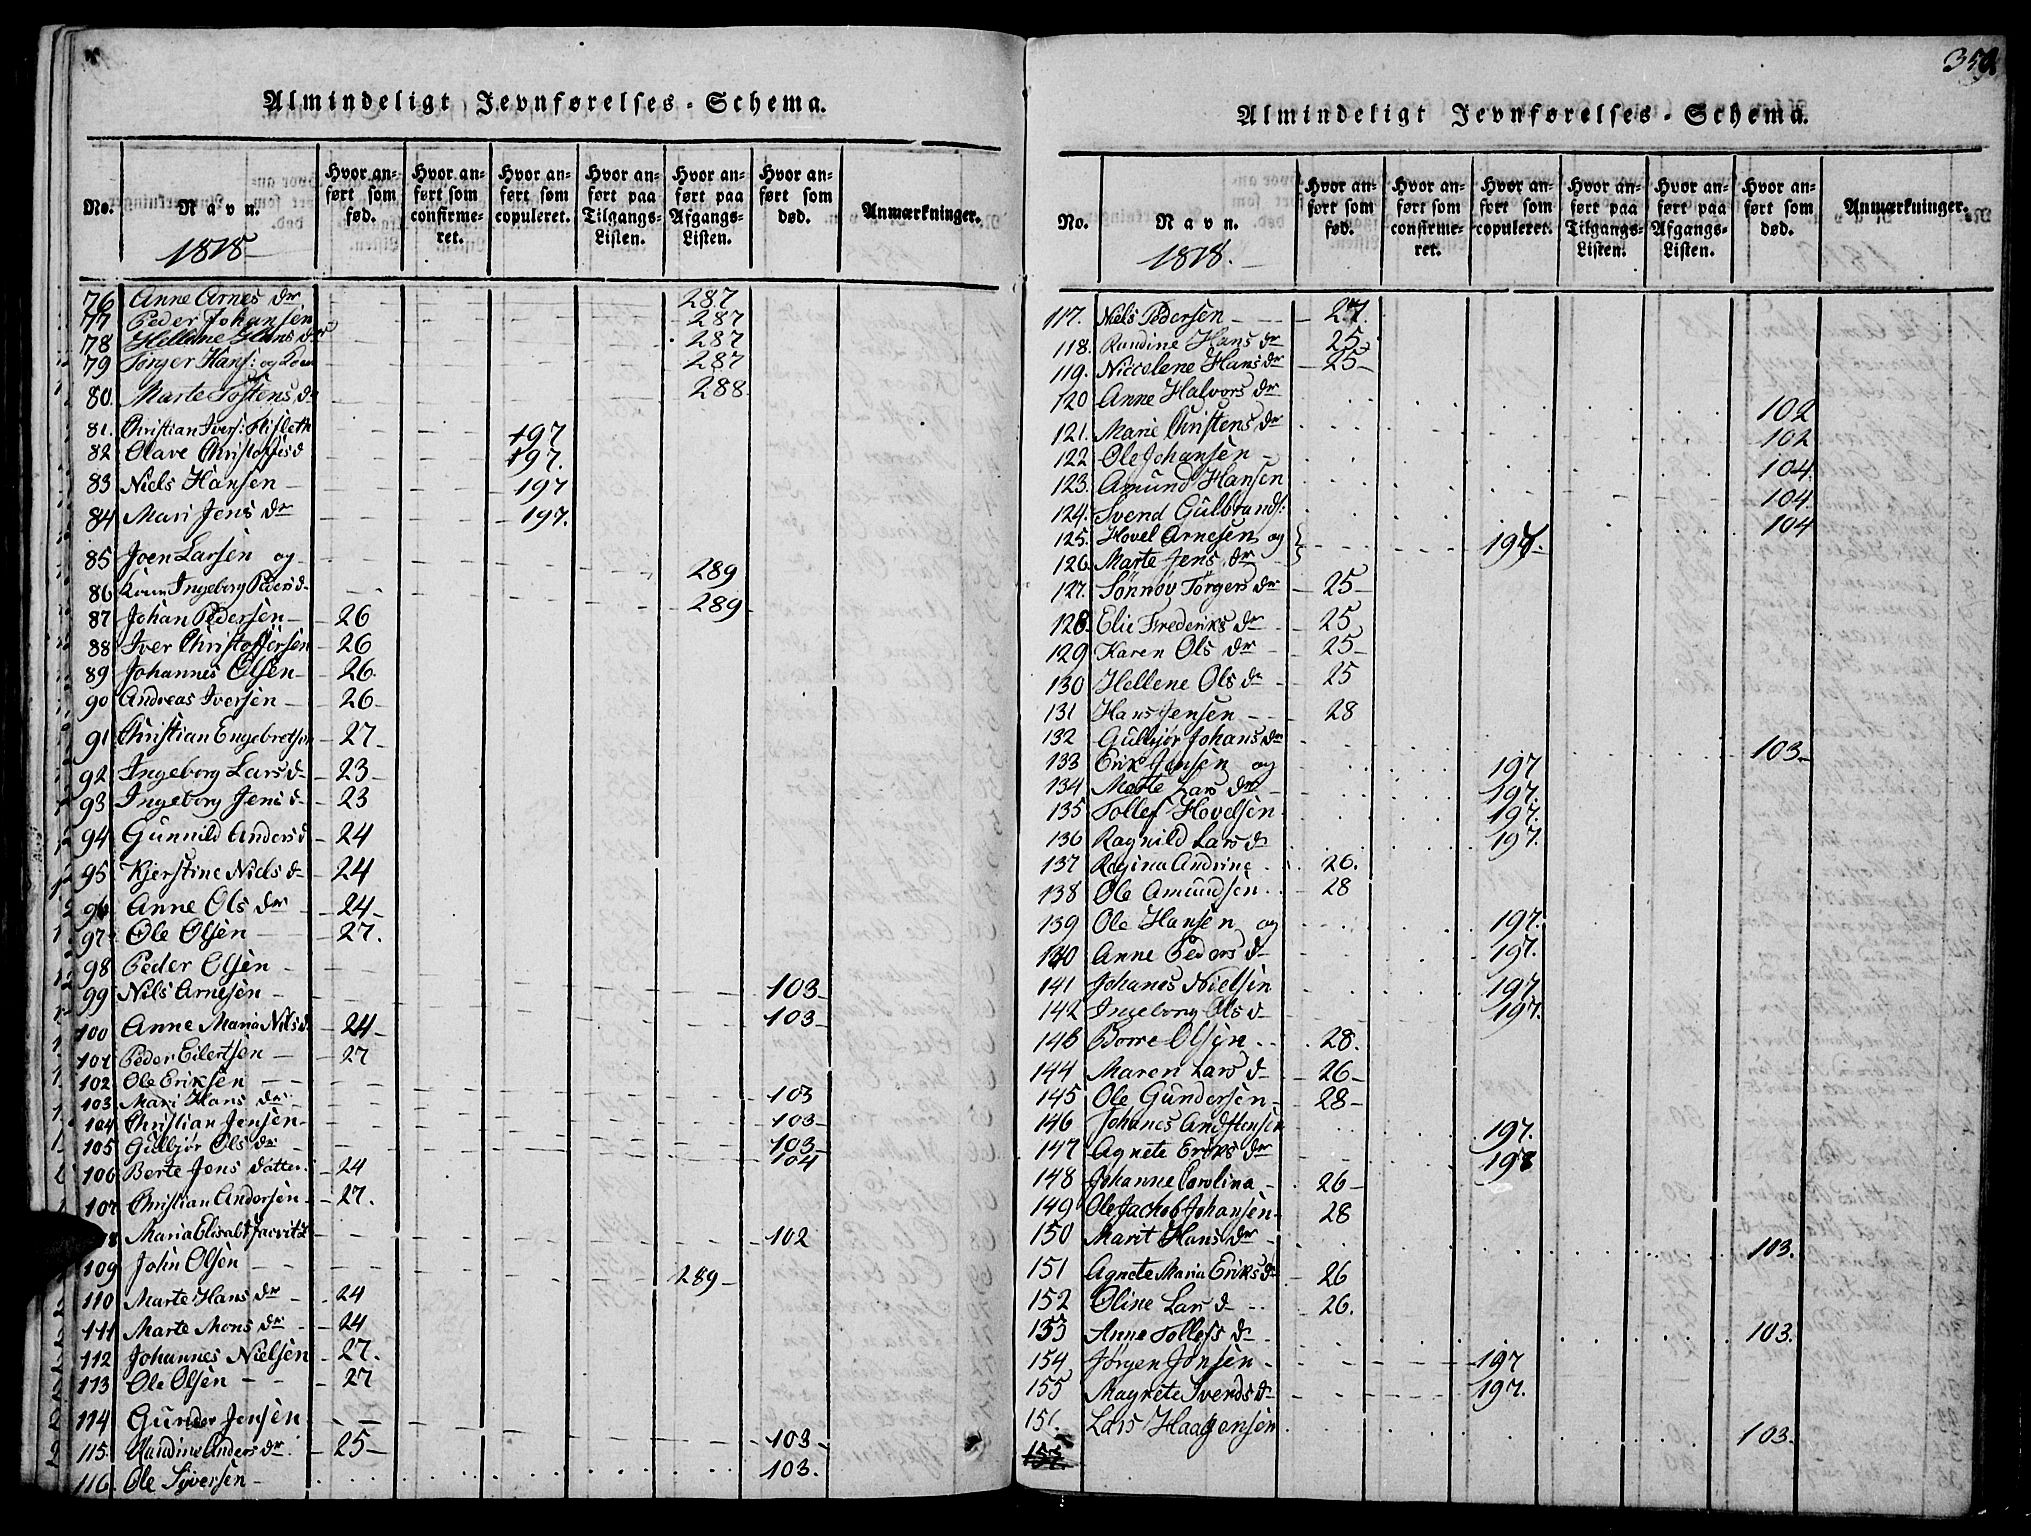 Almindeligt Jevnførelses-Schema.
No. Navn. Hvor anført som fød. Hvor anført som confirmeret. Hvor anført som copuleret. Hvor anført paa Tilgangs-Listen. Hvor anført paa Afgangs-Listen. Hvor anført som død. Anmærkninger.
1818
76 Anne Arnes dr 287
77 Peder Johansen 287
78 Hellene Hans dr 287
79 Torger Hans: og Kone 287
80. Marte Tostens dr 288
81. Christian Ivers: Flisleth 197
82 Olave Christoffers d 197.
83 Niels Hansen 197
84 Mari Jens dr 197.
85 Joen Larsen og 289
86 Kone Ingeborg Peders d 289
87 Johan Pedersen 26
88 Iver Christoffersen 26
89 Johannes Olsen 26
90 Andreas Iversen 26
91 Christian Engebretsen 27
92 Ingeborg Lars d 23
93 Ingeborg Jens d 23
94 Gunnild Anders d 24
95 Kjerstine Niels d 24
96 Anne Ols dr 24
97 Ole Olsen 27.
98 Peder Olsen 103
99 Nils Arnesen 103
100 Anne Maria Nils d 24
101 Peder Eilertsen 27
102 Ole Eriksen 103
103 Mari Hans dr 103
104 Christian Jensen 103
105 Gulbjør Ols dr 104
106 Berte Jens datter 24
107 Christian Andersen 27.
Maria Elisabt 102
109 John Olsen 289
110 Marte Hans dr 24
111 Marte Mons dr 24
112 Johannes Nielsen 27.
113 Ole Olsen 27
114 Gunder Jensen 103
115. Randine Anders dr 25
116. Ole Syversen 103.
359
Almindeligt Jevnførelses-Schema.
No. Navn. Hvor anført som fød. Hvor anført som confirmeret. Hvor anført som copuleret. Hvor anført paa Tilgangs-Listen. Hvor anført paa Afgangs-Listen. Hvor anført som død. Anmærkninger.
1818.
117. Niels Pedersen 27.
118. Randine Hans dr 25
119. Nicolene Hans dr 25
120 Anne Halvors dr 102
121. Marie Christens dr 102
122 Ole Johansen 104
123. Amund Hansen 104
124. Svend Gulbrands: 104
125. Hovel Arnesen og 197.
126. Marte Jens dr
127. Sønnøv Torgers dr 25
128. Elie Frederiks dr 25
129 Karen Ols dr 25
130 Hellene Ols d 25
131 Hans Jensen 28
132 Gulbjør Johans dr 103
133 Erik Jensen og 197
134 Marte Lars dr 197.
135 Tollef Hovelsen 197.
136 Ragnild Lars d 197.
137 Regina Andrine 26.
138 Ole Amundsen 28
139 Ole Hansen og 197.
140 Anne Peders d 197.
141 Johanes Nielsen 197
142 Ingeborg Ols d 197.
143 Borre Olsen 28.
144 Maren Lars d 26
145 Ole Gundersen 28
146 Johanes 197.
147 Agnete Eriks dr 198
148 Johanne Carolina 26
149 Ole Jachob Johansen 28
150 Marit Hans dr 103.
151 Agnete Maria Eriks d 26
152 Oline Lars d 26.
153 Anne Tollefs d 103.
154 Jørgen Jonsen 197
155 Magrete Sverds d 197.
Lars Haagensen 103
157.